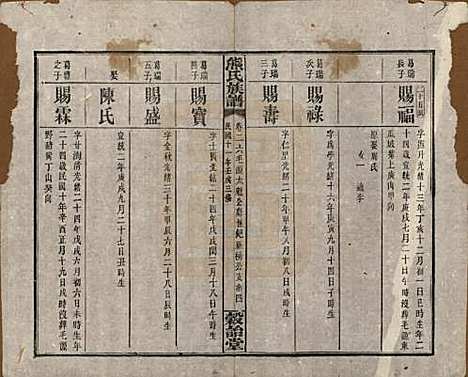 二十五世
葛瑞
長子
賜福
字國片光緒十三年丁亥十二月初一日巳時生
十四歲宣統二年庚戌七月二十日戌時沒葬毛源東
瓜坡葛上庚山甲向
原娶周氏
女一 適李
葛瑞
次子
賜祿
字爲學光緒十六年庚寅四月十四日子時生
葛瑞
三子
賜壽
字仁呈光緒二十年甲午八月初八日戌時生
熊氏族譜
民國十一年壬戌三修
穀詒堂
葛瑞
四子
賜寶
字士國光緒二十四年戊戌閏三月十八日午時生
葛瑞
五子
賜盛
字金秋光緒二十九年癸卯六月二十八日辰時生
娶
陳氏
宣統二年庚戌九月二十七日丑時生
葛禮
之子
賜霖
字甘澍光緒二十四年戊戌六月初六日未時生年
二十四歲民國十年辛酉正月十九日戌時沒葬毛源
野豬窩丁山癸向